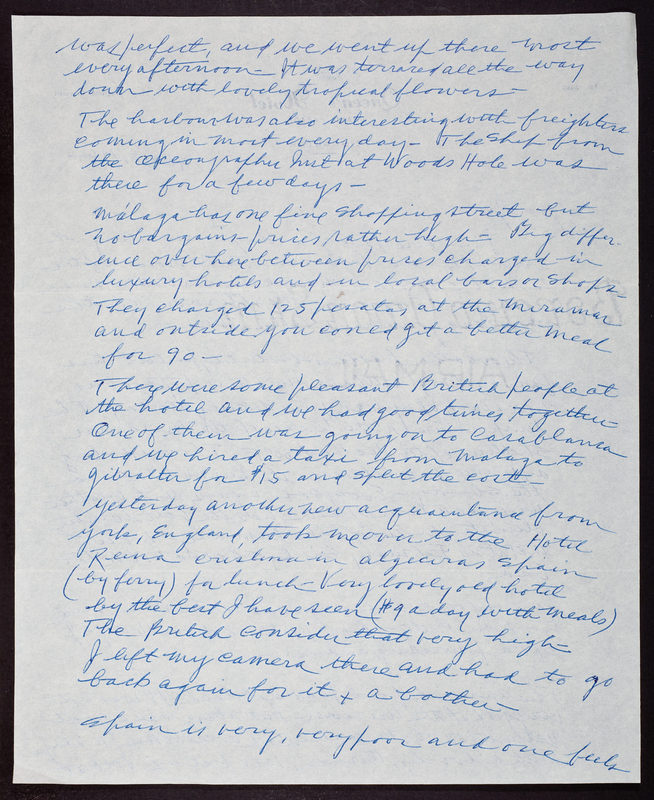 was perfect, and we went up there most
every afternoon – It was terraced all the way
down with lovely tropical flowers –
The harbour was also interesting with freighters
coming in most every day – The ship from
the Oceographic Inst at Woods Hole was
there for a few days –
Málaga has one fine shopping street but
no bargains – prices rather high – Big differ-
ence over here between prices charged in
luxury hotels and in local bars or shops –
They charged 125 pesatas at the Miramar
and outside you could get a better meal
for 90 –
There were some pleasant British people at
the hotel and we had good times together –
One of them was going on to Casablanca
and we hired a taxi from Malaga to
Gibralter for $15 and split the cost –
Yesterday another new acquaintance from
York, England, took me over to the Hotel
Reina Cristina in Algeciras Spain
(by ferry) for lunch – Very lovely old hotel
by the best I have seen ($9 a day with meals)
The British consider that very high –
I left my camera there and had to go
back again for it + a bother –
Spain is very, very poor and one feels